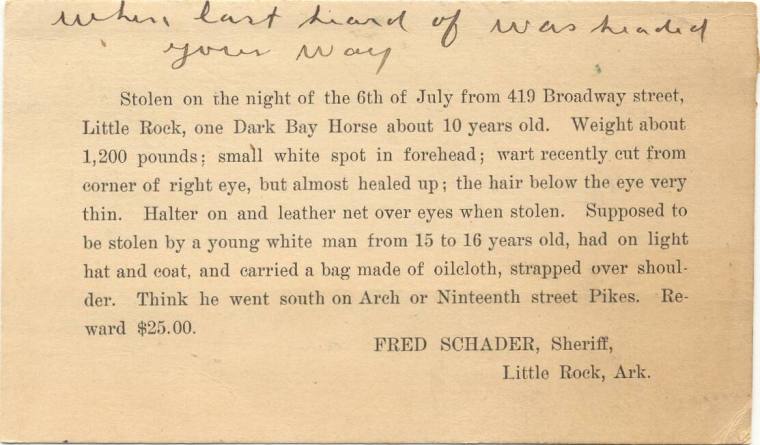 when last heard of was headed
your way
Stolen on the night of the 6th of July from 419 Broadway street,
Little Rock, one Dark Bay Horse about 10 years old. Weight about
1,200 pounds; small white spot in forehead; wart recently cut from
corner of right eye, but almost healed up; the hair below the eye very
thin. Halter on and leather net over eyes when stolen. Supposed to
be stolen by a young white man from 15 to 16 years old, had on light
hat and coat, and carried a bag made of oilcloth, strapped over shoul-
der. Think he went south on Arch or Ninteenth street Pikes. Re-
ward $25.00.
FRED SCHADER, Sheriff,
Little Rock, Ark.